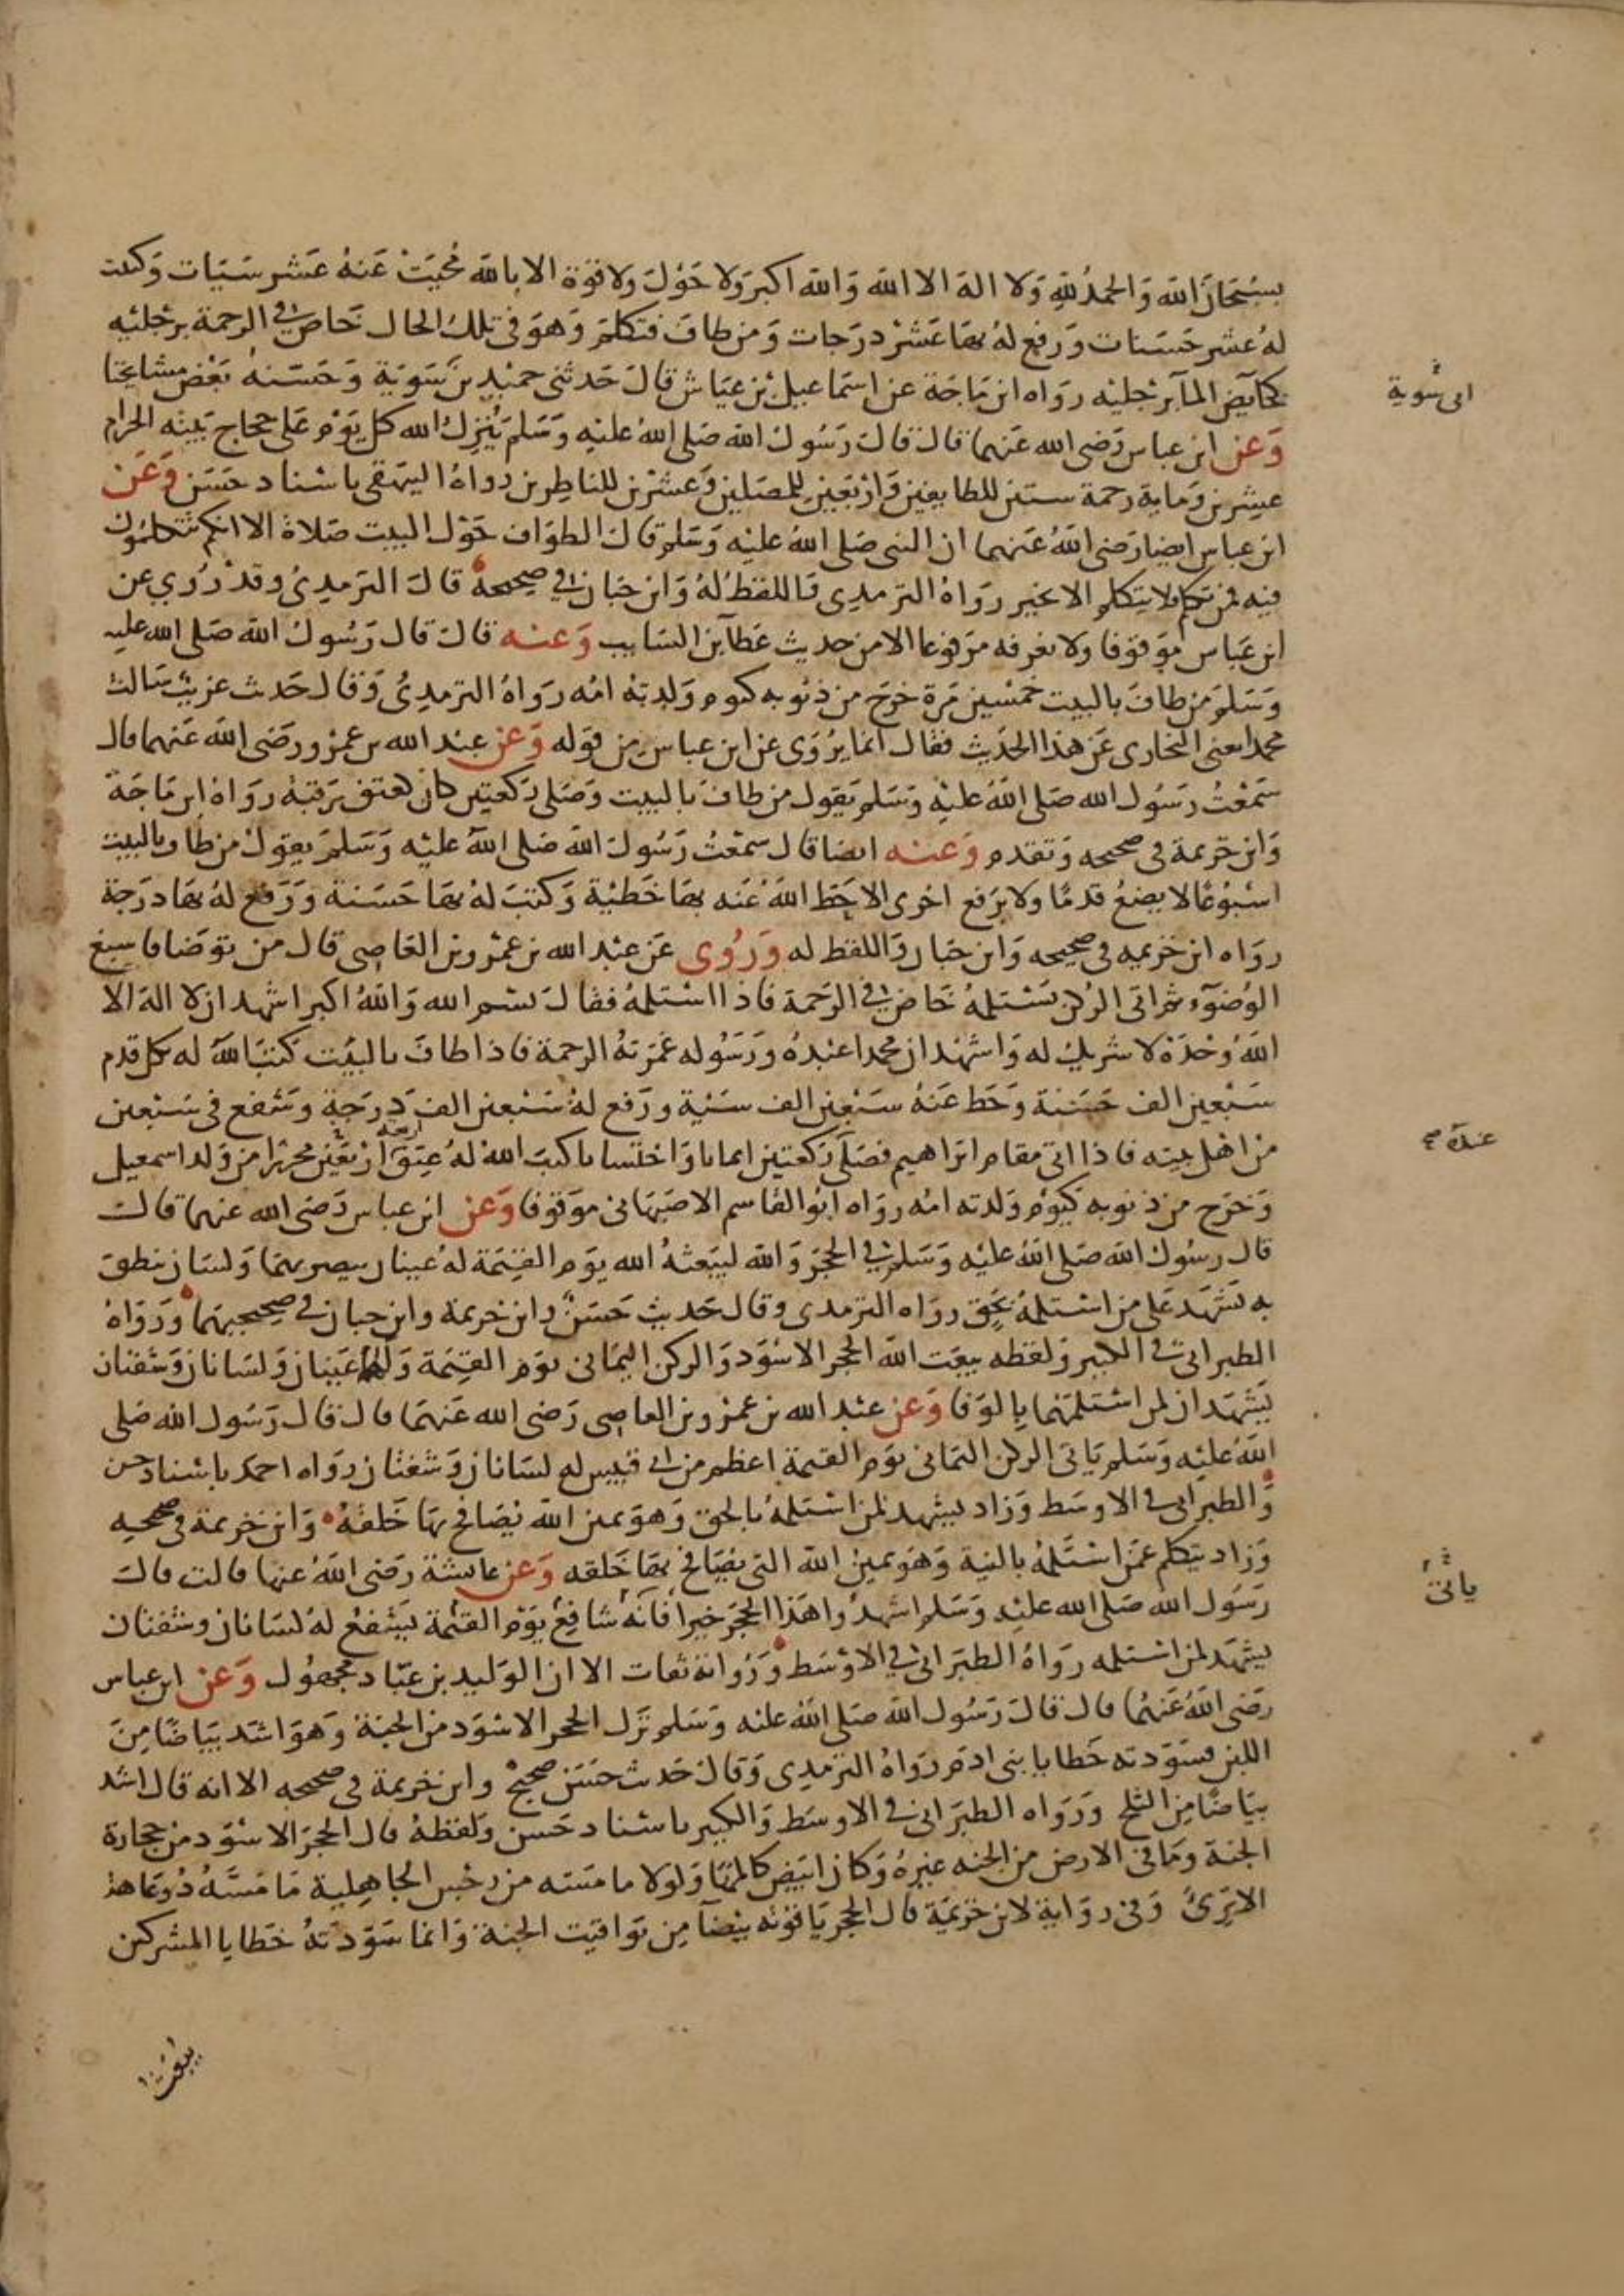 بسبحان الله والحمد لله ولا اله الا الله والله اكبر ولا حول ولا قوة الا بالله محيت عنه عشر سيات وكتبت
له عشر حسنات ورفع له بها عشر درجات ومن طاف فتكلم وهو في تلك الحال خاض في الرحمة برجليه
كخايض الما برجليه رواه ابن ماجة عن اسماعيل بن عياش قال حدثني حميد بن سوية وحسنه بعض مشايخنا
ابى سوية
وعن ابن عباس رضى الله عنهما قال قال رسول الله صلى الله عليه وسلم ينزل الله كل يوم على حجاج بيته الحرام
عشرين وماية رحمة ستين للطايفين واربعين للمصلين وعشرين للناظرين رواه البيهقى باسناد حسن وعن
ابن عباس ايضا رضى الله عنهما ان النبى صلى الله عليه وسلم قال الطواف حول البيت صلاة الا انكم تتكلمون
فيه فمن تكلم فلا يتكلم الا بخير رواه الترمدى واللفظ له وابن حبان في صحيحه قال الترمدى وقد روي عن
ابن عباس موقوفا ولا نعرفه مرفوعا الا من حديث عطا بن السايب وعنه قال قال رسول الله صلى الله عليه
وسلم من طاف بالبيت خمسين مرة خرج من ذنوبه كيوم ولدته امه رواه الترمدى وقال حدث غريب سالت
محمدا يعنى البخارى عن هذا الحديث فقال انما يروى عن ابن عباس من قوله وعن عبد الله بن عمر ورضى الله عنهما قال
سمعت رسول الله صلى الله عليه وسلم يقول من طاف بالبيت وصلى ركعتين كان كعتق رقبة رواه ابن ماجة
وابن خزيمة فى صحيحه وتقدم وعنه ايضا قال سمعت رسول الله صلى الله عليه وسلم يقول من طاف بالبيت
اسبوعا لا يضع قدما ولا يرفع اخرى الا حط الله عنه بها خطية وكتب له بها حسنة ورفع له بها درجة
رواه ابن خزيمه فى صحيحه وابن حبان واللفظ له وروى عن عبد الله بن عمرو بن العاصى قال من توضا فاسبغ
الوضوء ثم اتى الركن يستلمه خاض في الرحمة فاذا استلمه فقال بسم الله والله اكبر اشهد ان لا اله الا
الله وحده لا شريك له واشهد ان محمدا عبده ورسوله غمرته الرحمة فاذا طاف بالبيت كتب الله له بكل قدم
سبعين الف حسنة وحط عنه سبعين الف سيية ورفع له سبعين الف درجة وشفع فى سبعين
من اهل بيته فاذا اتى مقام ابراهيم فصلى ركعتين ايمانا واحتسابا كتب الله له عتق اربعة اربعين محررا من ولد اسمعيل
وخرج من ذنوبه كيوم ولدته امه رواه ابو القاسم الاصبهانى موقوفا وعن ابن عباس رضى الله عنهما قال
قال رسول الله صلى الله عليه وسلم في الحجر والله ليبعثه الله يوم القيمة له عينان يبصر بهما ولسان ينطق
به يشهد على من استلمه بحق رواه الترمدى وقال حديث حسن وابن خزيمة وابن حبان في صحيحيهما ورواه
الطبرانى في الكبير ولفظه يبعث الله الحجر الاسود والركن اليمانى يوم القيمة ولهما عينان ولسانان وشفتان
يشهدان لمن استلمهما بالوفا وعن عبد الله بن عمرو بن العاصى رضى الله عنهما قال قال رسول الله صلى
الله عليه وسلم ياتى الركن اليمانى يوم القيمة اعظم من ابى قبيس له لسانان وشفتان رواه احمد باسناد حسن
والطبرانى في الاوسط وزاد يشهد لمن استلمه بالحق وهو يمين الله يصافح بها خلقه وابن خزيمة فى صحيحه
وزاد يتكلم عمن استلمه بالنية وهو يمين الله التى يصافح بها خلقه وعن عايشة رضى الله عنها قالت قال
ياتى
رسول الله صلى الله عليه وسلم اشهدوا هذا الحجر خيرا فانه شافع يوم القيمة يشفع له لسانان وشفتان
يشهد لمن استلمه رواه الطبرانى في الاوسط ورواته ثقات الا ان الوليد بن عباد مجهول وعن ابن عباس
رضى الله عنهما قال قال رسول الله صلى الله عليه وسلم نزل الحجر الاسود من الجنة وهو اشد بياضا من
اللبن فسودته خطايا بنى ادم رواه الترمدى وقال حدث حسن صحيح وابن خزيمة فى صحيحه الا انه قال اشد
بياضا من الثلج ورواه الطبرانى في الاوسط والكبير باسناد حسن ولفظه قال الحجر الاسود من حجارة
الجنة وما فى الارض من الجنه غيره وكان ابيض كالمها ولولا ما مسه من رجس الجاهلية ما مسه ذو عاهة
الا برئ وفى رواية لابن خزيمة قال الحجر ياقوته بيضا من يواقيت الجنة وانما سودته خطايا المشركين